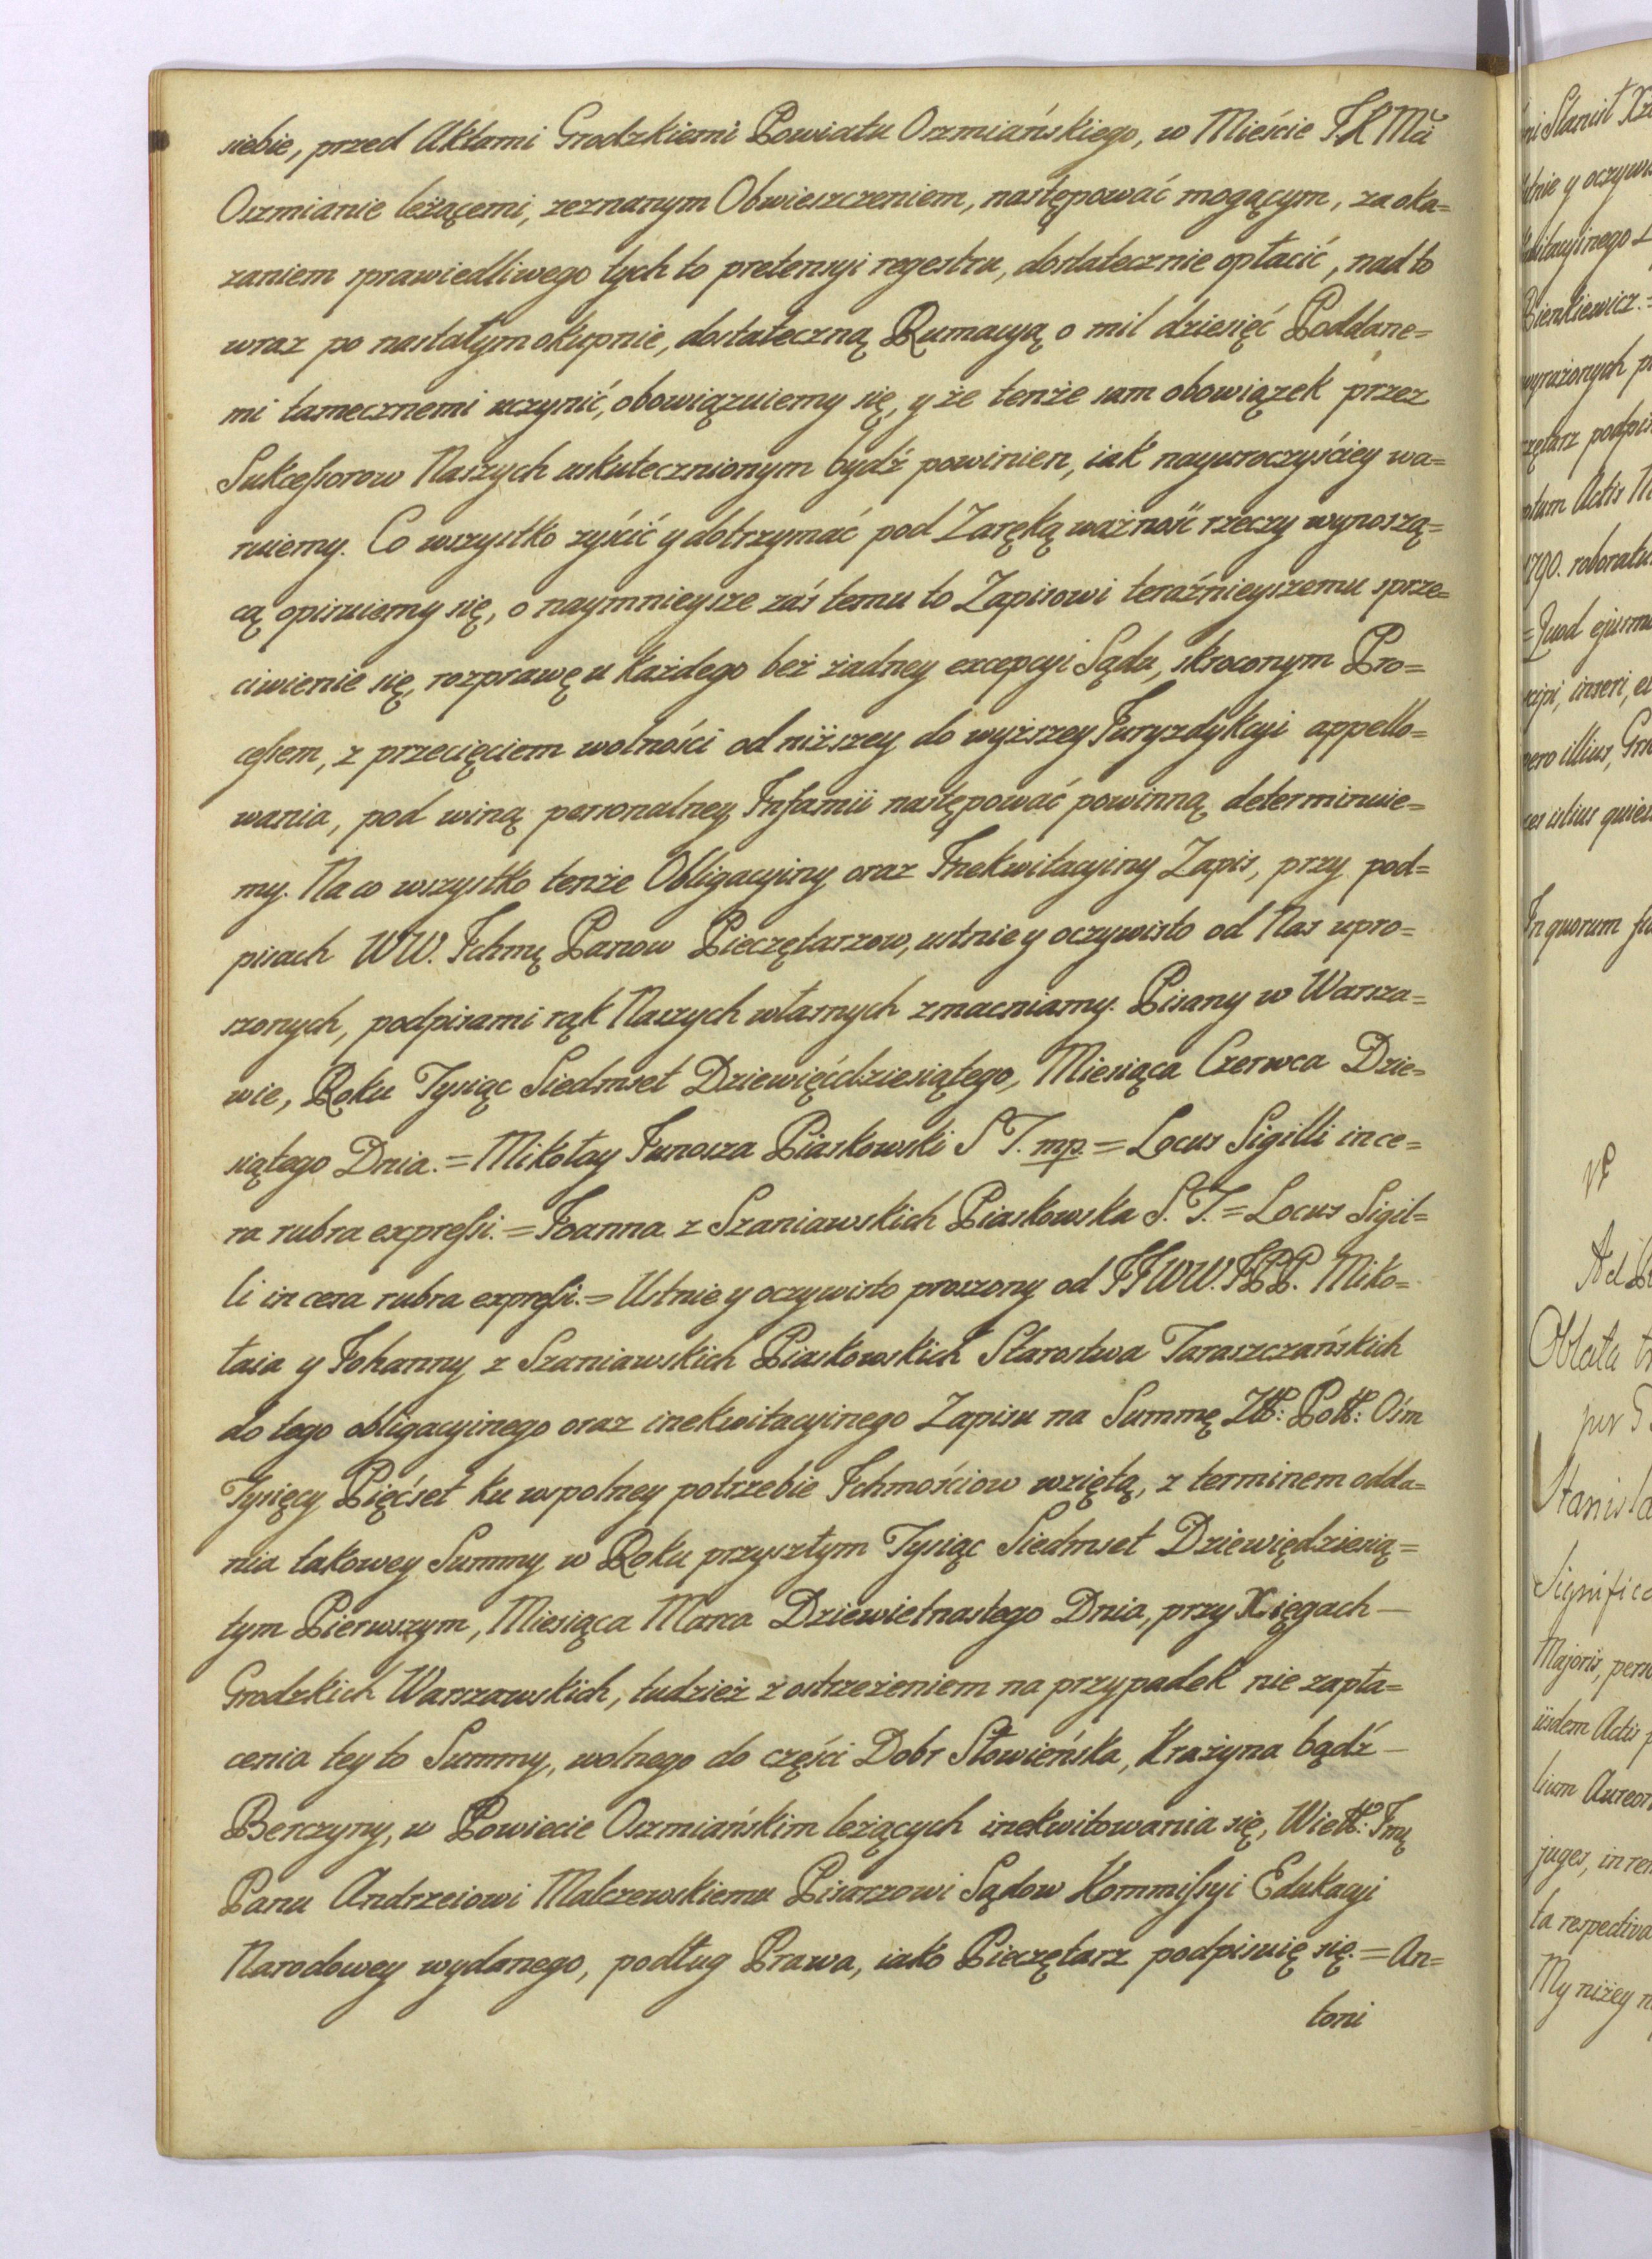 siebie, przed Aktami Grodzkiemi Powiatu Oszmiańskiego, w Mieście J.K Mci
Oszmianie leżącemi, zeznanym Obwieszczeniem, następować mogącym, za oka=
zaniem sprawiedliwego tych to pretensyi regestru, dostatecznie opłacić, nad to
wraz po nastałym okupnie, dostateczną Rumacyą o mil dziesięć Poddane=
mi tamecznemi uczynić, obowiązuiemy się, y że tenże sam obowiązek przez
Sukcessorow Naszych uskutecznionym bydź powinien, iak nayuroczyściey wa=
ruiemy. Co wszystko zyścić y dotrzymać pod Zaręką ważność rzeczy wynoszą=
cą opisuiemy się, o naymnieysze zaś temu to Zapisowi teraźnieyszemu sprze=
ciwienie się, rozprawę u każdego beż żadney excepcyi Sądu, skroconym Pro=
cessem, z przecięciem wolności od niższey do wyższey Juryzdykcyi appello=
wania, pod winą personalney Infamii następować powinną determinuie=
my. Na co wszystko tenże Obligacyiny oraz Inekwitacyiny Zapis, przy pod=
pisach WW. Ichmę Panow Pieczętarzow, ustnie y oczywisto od Nas upro=
szonych, podpisami rąk Naszych własnych zmacniamy. Pisany w Warsza=
wie, Roku Tysiąc Siedmset Dziewięćdziesiątego, Miesiąca Czerwca Dzie=
siątego Dnia. = Mikołay Junosza Piaskowski S T. mp. = Locus Sigilli in ce=
ra rubra expressi. = Joanna z Szaniawskich Piaskowska S. T. = Locus Sigil=
li in cera rubra expressi. = Ustnie y oczywisto proszony od JJWW. JPP. Miko=
łaia y Johanny z Szaniawskich Piaskowskich Starostwa Taraszczańskich
do tego obligacyinego oraz inekwitacyinego Zapisu na Summę Złł: Poll: Ośm
Tysięcy Pięćset ku wspolney potrzebie Ichmościow wziętą, z terminem odda=
nia takowey Summy w Roku przyszłym Tysiąc Siedmset Dziewiędziesią=
tym Pierwszym, Miesiąca Marca Dziewietnastego Dnia, przy Xięgach —
Grodzkich Warszawskich, tudzież z ostrzeżeniem na przypadek nie zapła=
cenia tey to Summy, wolnego do części Dobr Słowieńska, Krażyna bądź —
Berczyny, w Powiecie Oszmiańskim leżących inekwitowania się, Wiell: Jmę
Panu Andrzeiowi Malczewskiemu Pisarzowi Sądow Kommissyi Edukacyi
Narodowey wydanego, podług Prawa, iako Pieczętarz podpisuię się. = An=
toni